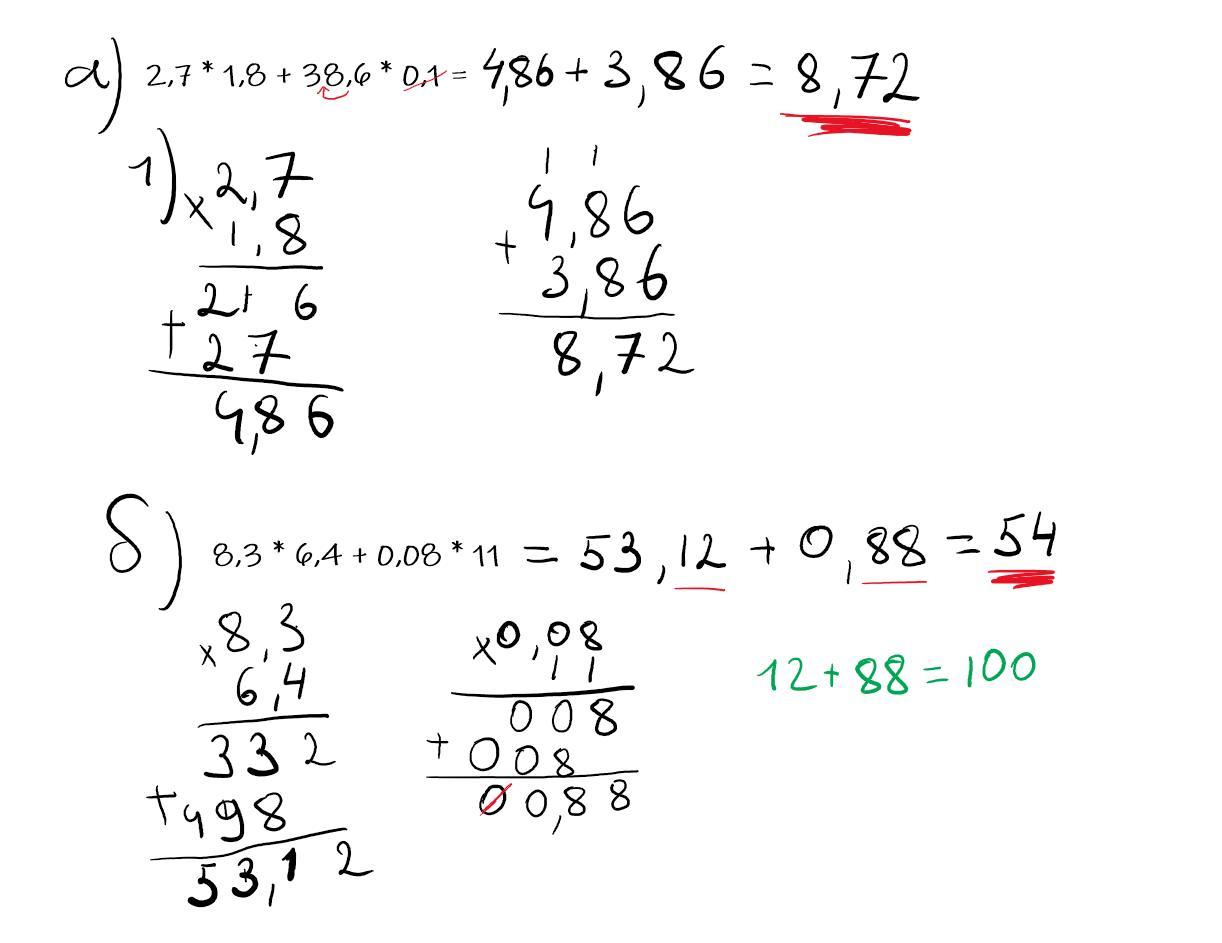 а) 2,7 * 1,8 + 38,6 * 0,1 = 4,86 + 3,86 = 8,72
1) × 2,7
1,8
21 6
+ 27
4,86
1 1
4,86
+
3,86
8,72
б) 8,3 * 6,4 + 0,08 * 11 = 53,12 + 0,88 = 54
× 8,3
6,4
332
+ 498
53,12
× 0,08
11
008
+ 008
00,88
12 + 88 = 100